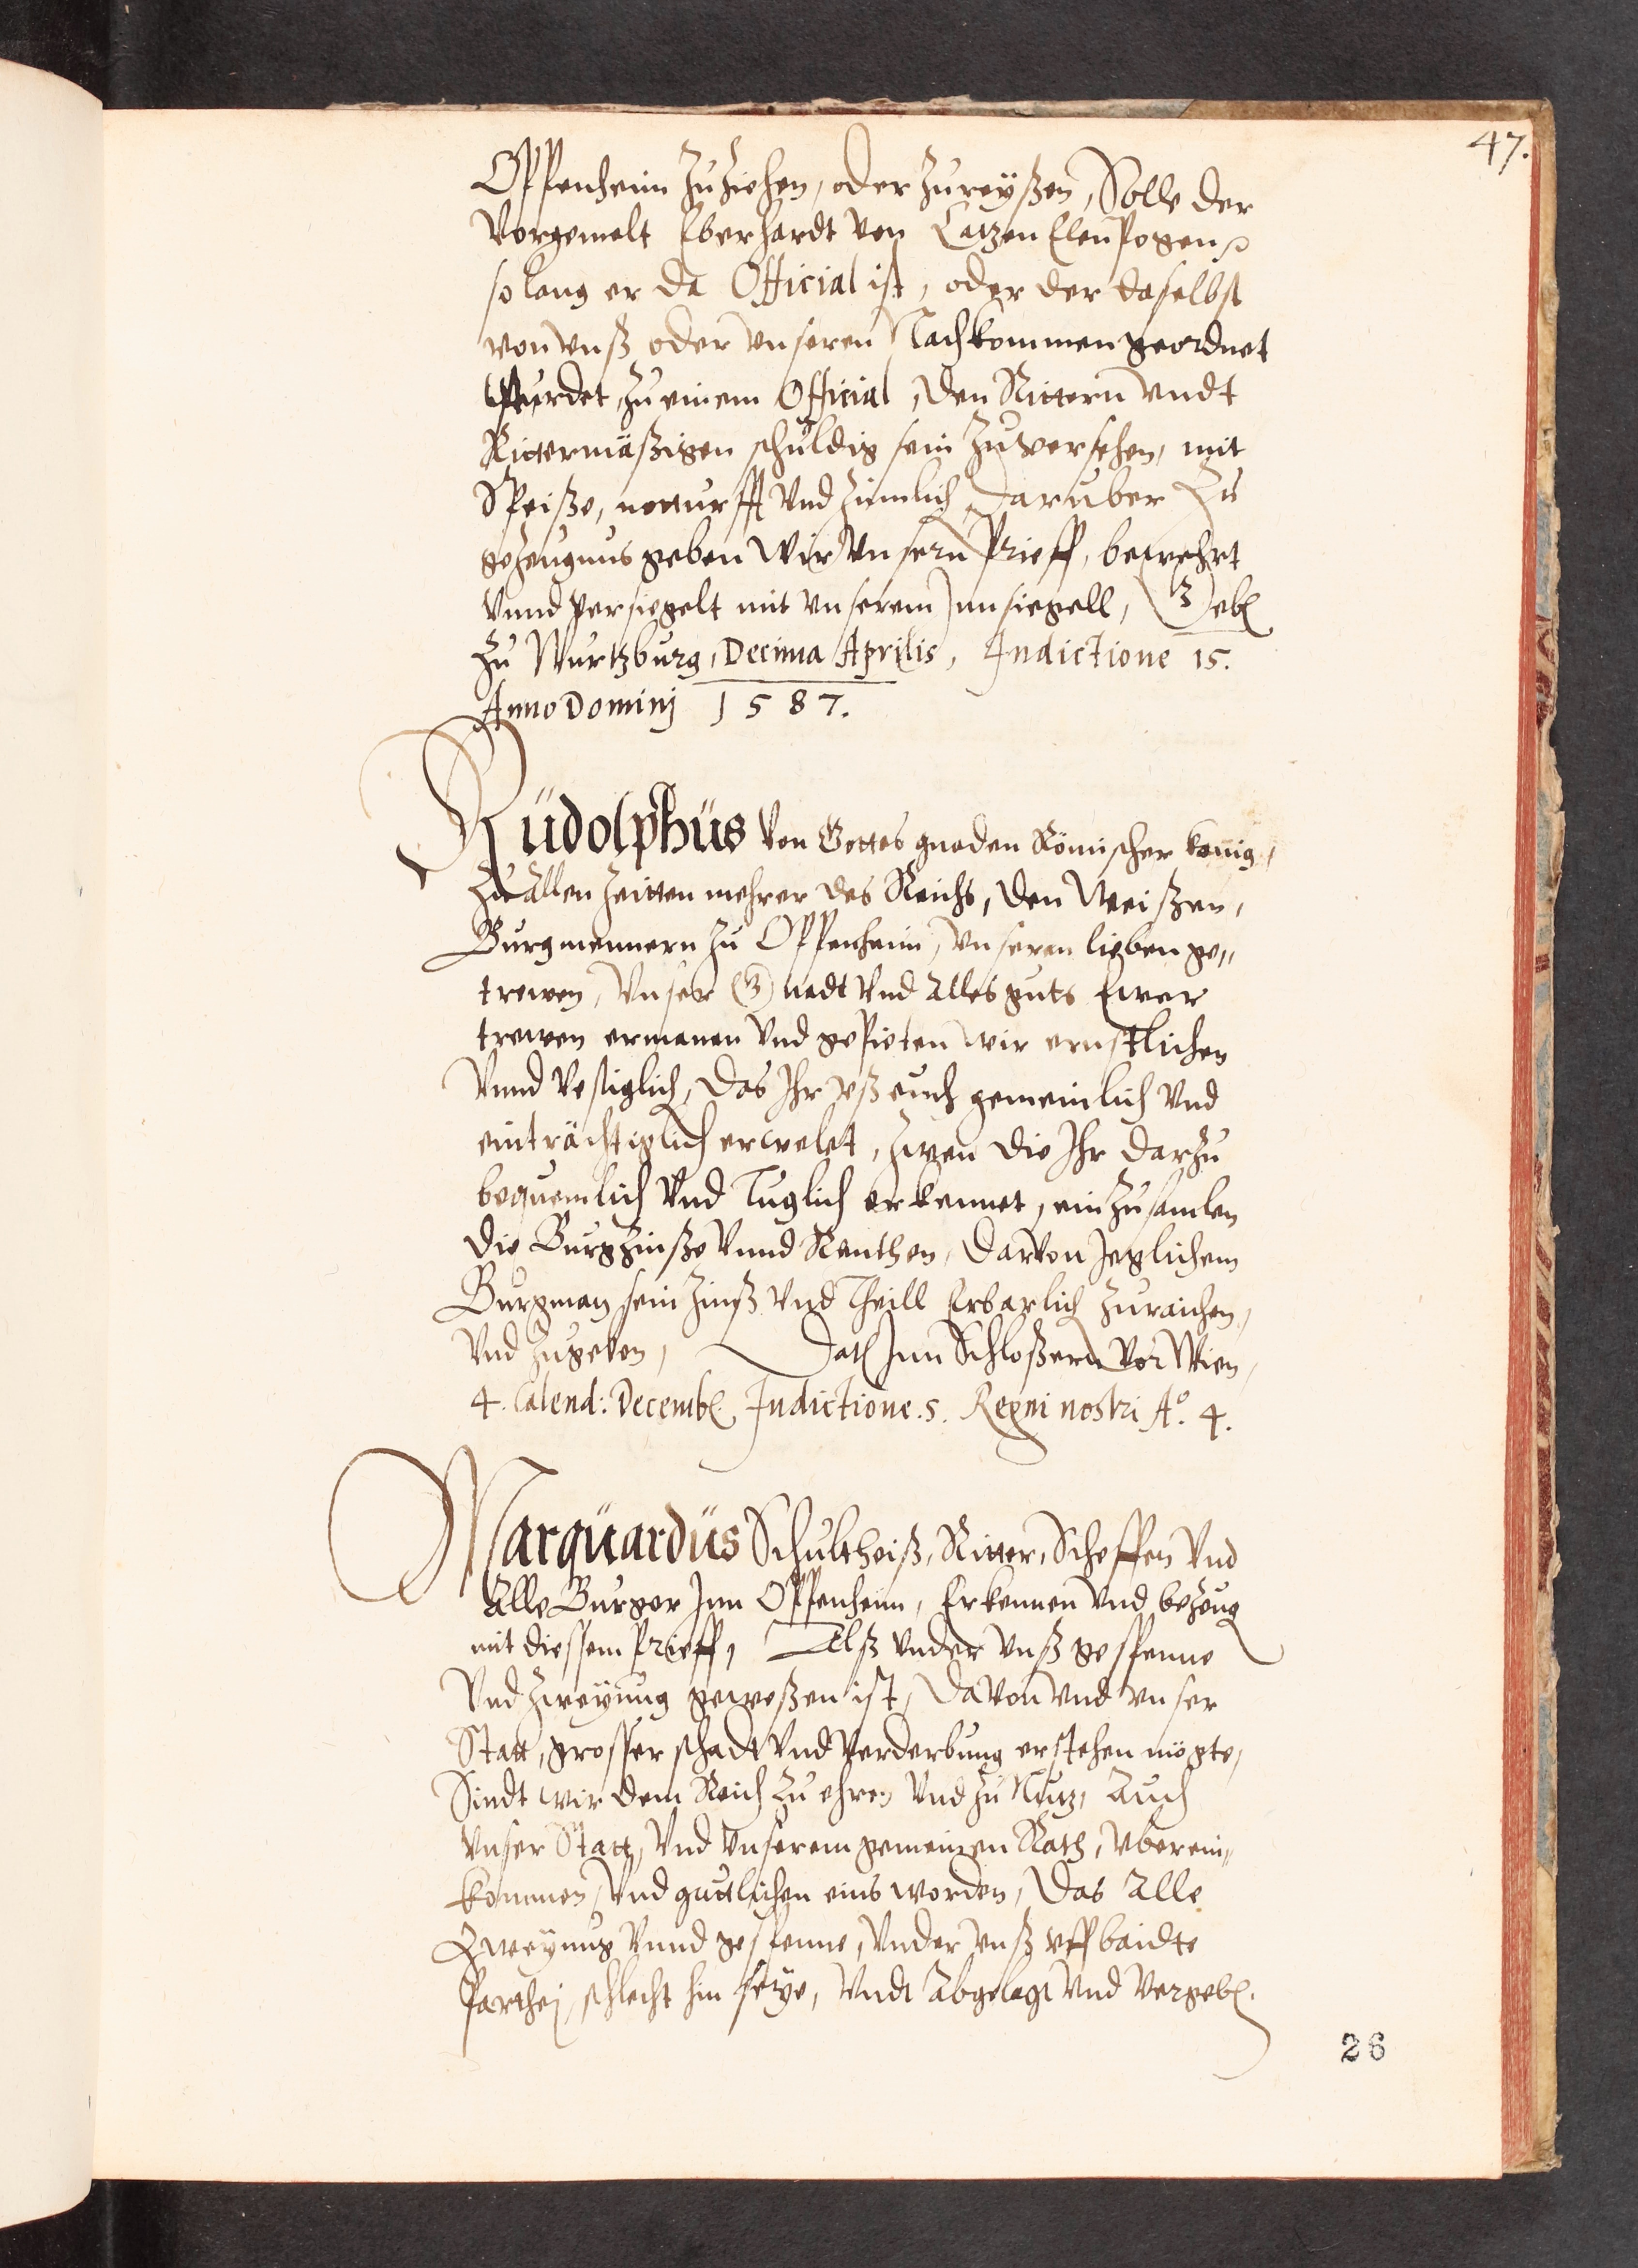 47.
Oppenheim zuziehen, oder zureyßen, Solle der
Vorgemelt Eberhardt von Catzen Elenpogen
so lang er da Official ist, oder der daselbst
von vnß oder vnseren Nachkommen geordnet
wurdet, zu einem Official, den Rittern vndt
Rittermäßigen schuldig sein zuversehen, mit
Speiße, notturfft vnd zimlich, Daruber Zu
gezeugnus geben wir vnsern Prieff, bewehrt
vnnd versiegelt mit vnserem Innsiegell, Geb
zu Wurtzburg, Decima Aprilis, Indictione 15.
Anno Dominj 1587.
Rüdolphüs von Gottes gnaden Römischer konig,
zu allen Zeitten mehrer des Reichs, den Weißen,
Burgmennern zu Oppenheim, vnseren lieben ge„
trewen, vnser Gnadt vnd alles guts Ewer
trewen ermanen vnd gepieten wir ernstlichen
vnnd vestiglich, das Ihr vß euch gemeinlich vnd
einträchtiglich erwelet, zwen die Ihr darzu
bequemlich vnd tuglich erkennet, ein zusamlen
die Burgzinße vnnd Renthen, darvon Jeglichem
Burgman sein Zinß vnd Theill Erbarlich zuraichen,
vnd zugeben, Dat Inn Schloßern vor Wien,
4. Calend: Decemb. Indictione. 5. Regni nostri Aº. 4.
Marqüardüs Schultheiß, Ritter, Scheffen vnd
alle Burger Inn Oppenheim, Erkennen vnd bezeug
mit diessem Prieff, Alß vnder vnß gespenne
vnd zweyung geweßen ist, davon vnd vnser
Statt, grosser schadt vnd Verderbung erstehen mögte,
Sindt wir dem Reich zu ehren vnd zu Nutz, auch
vnser Statt, vnd vnserem gemeinen Rath, vberein„
kommen, vnd guttlichen eins worden, das alle
Zweyung vnnd gespenne, vnder vnß vff baidte
Parthej, schlecht hin seye, vndt abgelegt vnd vergeb.
26